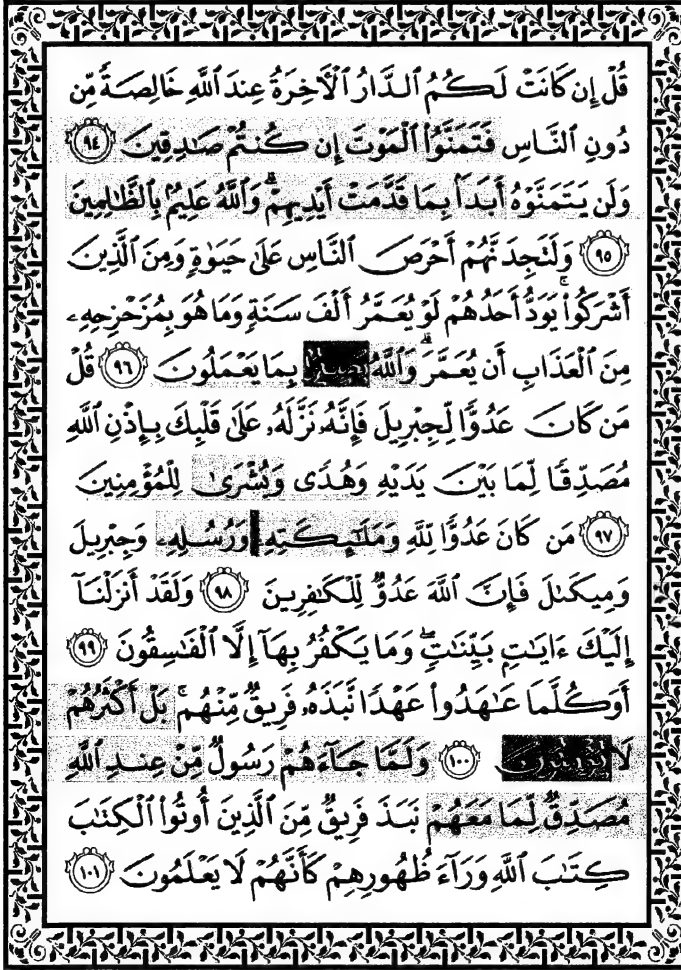 قُلْ إِن كَانَتْ لَكُمُ ٱلدَّارُ ٱلْآخِرَةُ عِندَ ٱللَّهِ خَالِصَةً مِّن
دُونِ ٱلنَّاسِ فَتَمَنَّوُا۟ ٱلْمَوْتَ إِن كُنتُمْ صَـٰدِقِينَ ٩٤
وَلَن يَتَمَنَّوْهُ أَبَدًۢا بِمَا قَدَّمَتْ أَيْدِيهِمْ ۗ وَٱللَّهُ عَلِيمٌۢ بِٱلظَّـٰلِمِينَ
٩٥ وَلَتَجِدَنَّهُمْ أَحْرَصَ ٱلنَّاسِ عَلَىٰ حَيَوٰةٍ وَمِنَ ٱلَّذِينَ
أَشْرَكُوا۟ ۚ يَوَدُّ أَحَدُهُمْ لَوْ يُعَمَّرُ أَلْفَ سَنَةٍ وَمَا هُوَ بِمُزَحْزِحِهِۦ
مِنَ ٱلْعَذَابِ أَن يُعَمَّرَ ۗ وَٱللَّهُ بِمَا يَعْمَلُونَ ٩٦ قُلْ
مَن كَانَ عَدُوًّا لِّجِبْرِيلَ فَإِنَّهُۥ نَزَّلَهُۥ عَلَىٰ قَلْبِكَ بِإِذْنِ ٱللَّهِ
مُصَدِّقًا لِّمَا بَيْنَ يَدَيْهِ وَهُدًى وَبُشْرَىٰ لِلْمُؤْمِنِينَ
٩٧ مَن كَانَ عَدُوًّا لِّلَّهِ وَمَلَـٰٓئِكَتِهِۦ وَرُسُلِهِۦ وَجِبْرِيلَ
وَمِيكَىٰلَ فَإِنَّ ٱللَّهَ عَدُوٌّ لِّلْكَـٰفِرِينَ ٩٨ وَلَقَدْ أَنزَلْنَآ
إِلَيْكَ ءَايَـٰتٍۭ بَيِّنَـٰتٍ ۖ وَمَا يَكْفُرُ بِهَآ إِلَّا ٱلْفَـٰسِقُونَ ٩٩
أَوَكُلَّمَا عَـٰهَدُوا۟ عَهْدًا نَّبَذَهُۥ فَرِيقٌ مِّنْهُم ۚ بَلْ أَكْثَرُهُمْ
لَا ١٠٠ وَلَمَّا جَآءَهُمْ رَسُولٌ مِّنْ عِندِ ٱللَّهِ
مُصَدِّقٌ لِّمَا مَعَهُمْ نَبَذَ فَرِيقٌ مِّنَ ٱلَّذِينَ أُوتُوا۟ ٱلْكِتَـٰبَ
كِتَـٰبَ ٱللَّهِ وَرَآءَ ظُهُورِهِمْ كَأَنَّهُمْ لَا يَعْلَمُونَ ١٠١